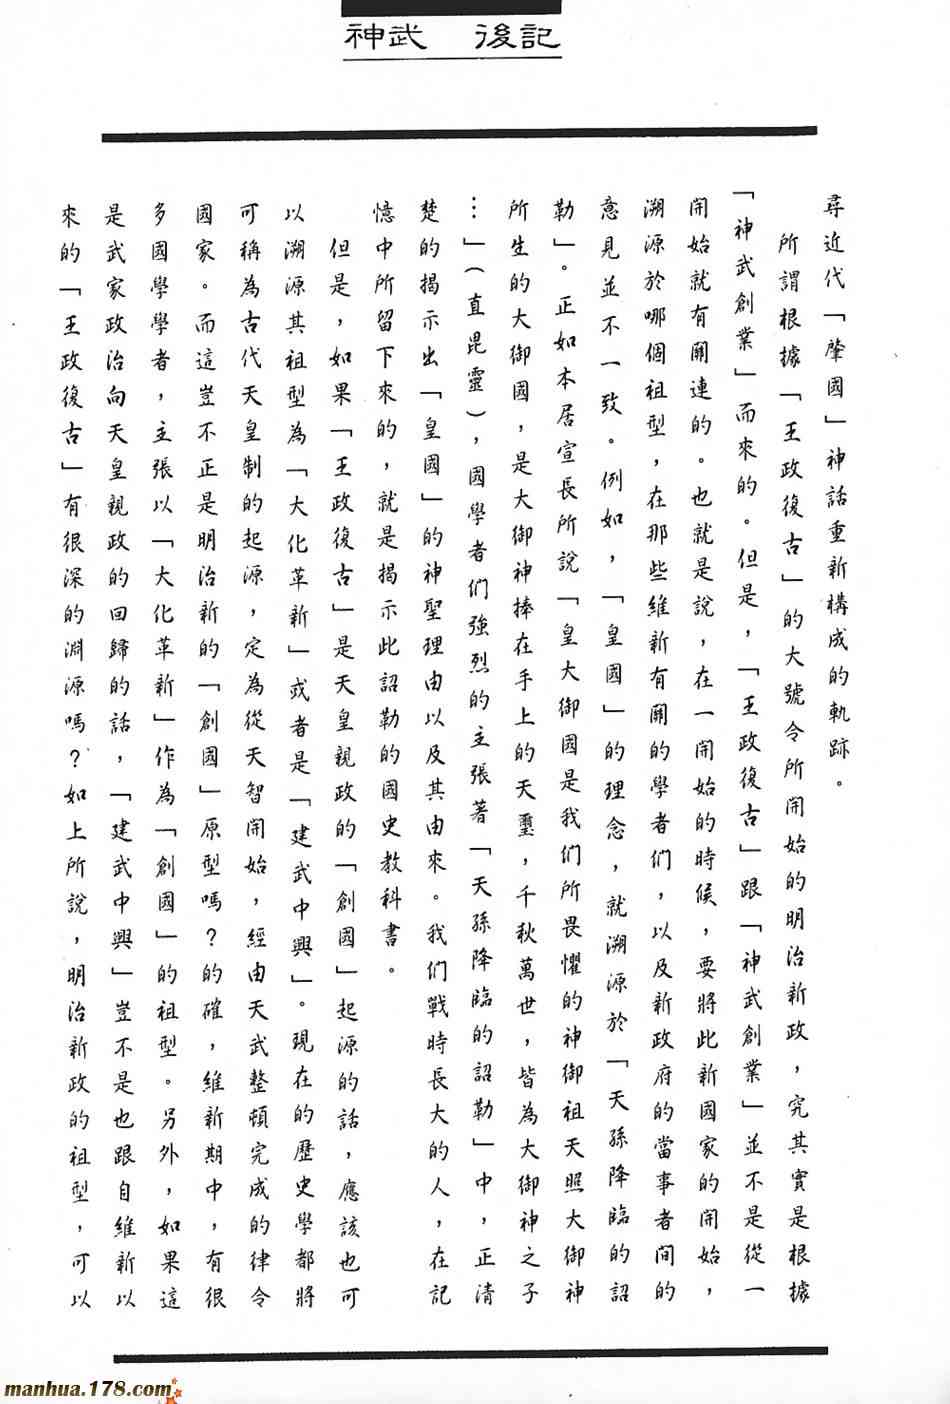 神武　後記
尋近代「肇國」神話重新構成的軌跡。
所謂根據「王政復古」的大號令所開始的明治新政，究其實是根據
「神武創業」而來的。但是，「王政復古」跟「神武創業」並不是從一
開始就有關連的。也就是說，在一開始的時候，要將此新國家的開始，
溯源於哪個祖型，在那些維新有關的學者們，以及新政府的當事者間的
意見並不一致。例如，「皇國」的理念，就溯源於「天孫降臨的詔
勒」。正如本居宣長所說「皇大御國是我们所畏懼的神御祖天照大御神
所生的大御國，是大御神捧在手上的天璽，千秋萬世，皆為大御神之子
…」（直毘靈），國學者们強烈的主張著「天孫降臨的詔勒」中，正清
楚的揭示出「皇國」的神聖理由以及其由來。我们戰時長大的人，在記
憶中所留下來的，就是揭示此詔勒的國史教科書。
但是，如果「王政復古」是天皇親政的「創國」起源的話，應該也可
以溯源其祖型為「大化革新」或者是「建武中興」。現在的歷史學都將
可稱為古代天皇制的起源，定為從天智開始，經由天武整頓完成的律令
國家。而這豈不正是明治新的「創國」原型嗎？的確，維新期中，有很
多國學學者，主張以「大化革新」作為「創國」的祖型。另外，如果這
是武家政治向天皇親政的回歸的話，「建武中興」豈不是也跟自維新以
來的「王政復古」有很深的淵源嗎？如上所說，明治新政的祖型，可以
manhua.178.com